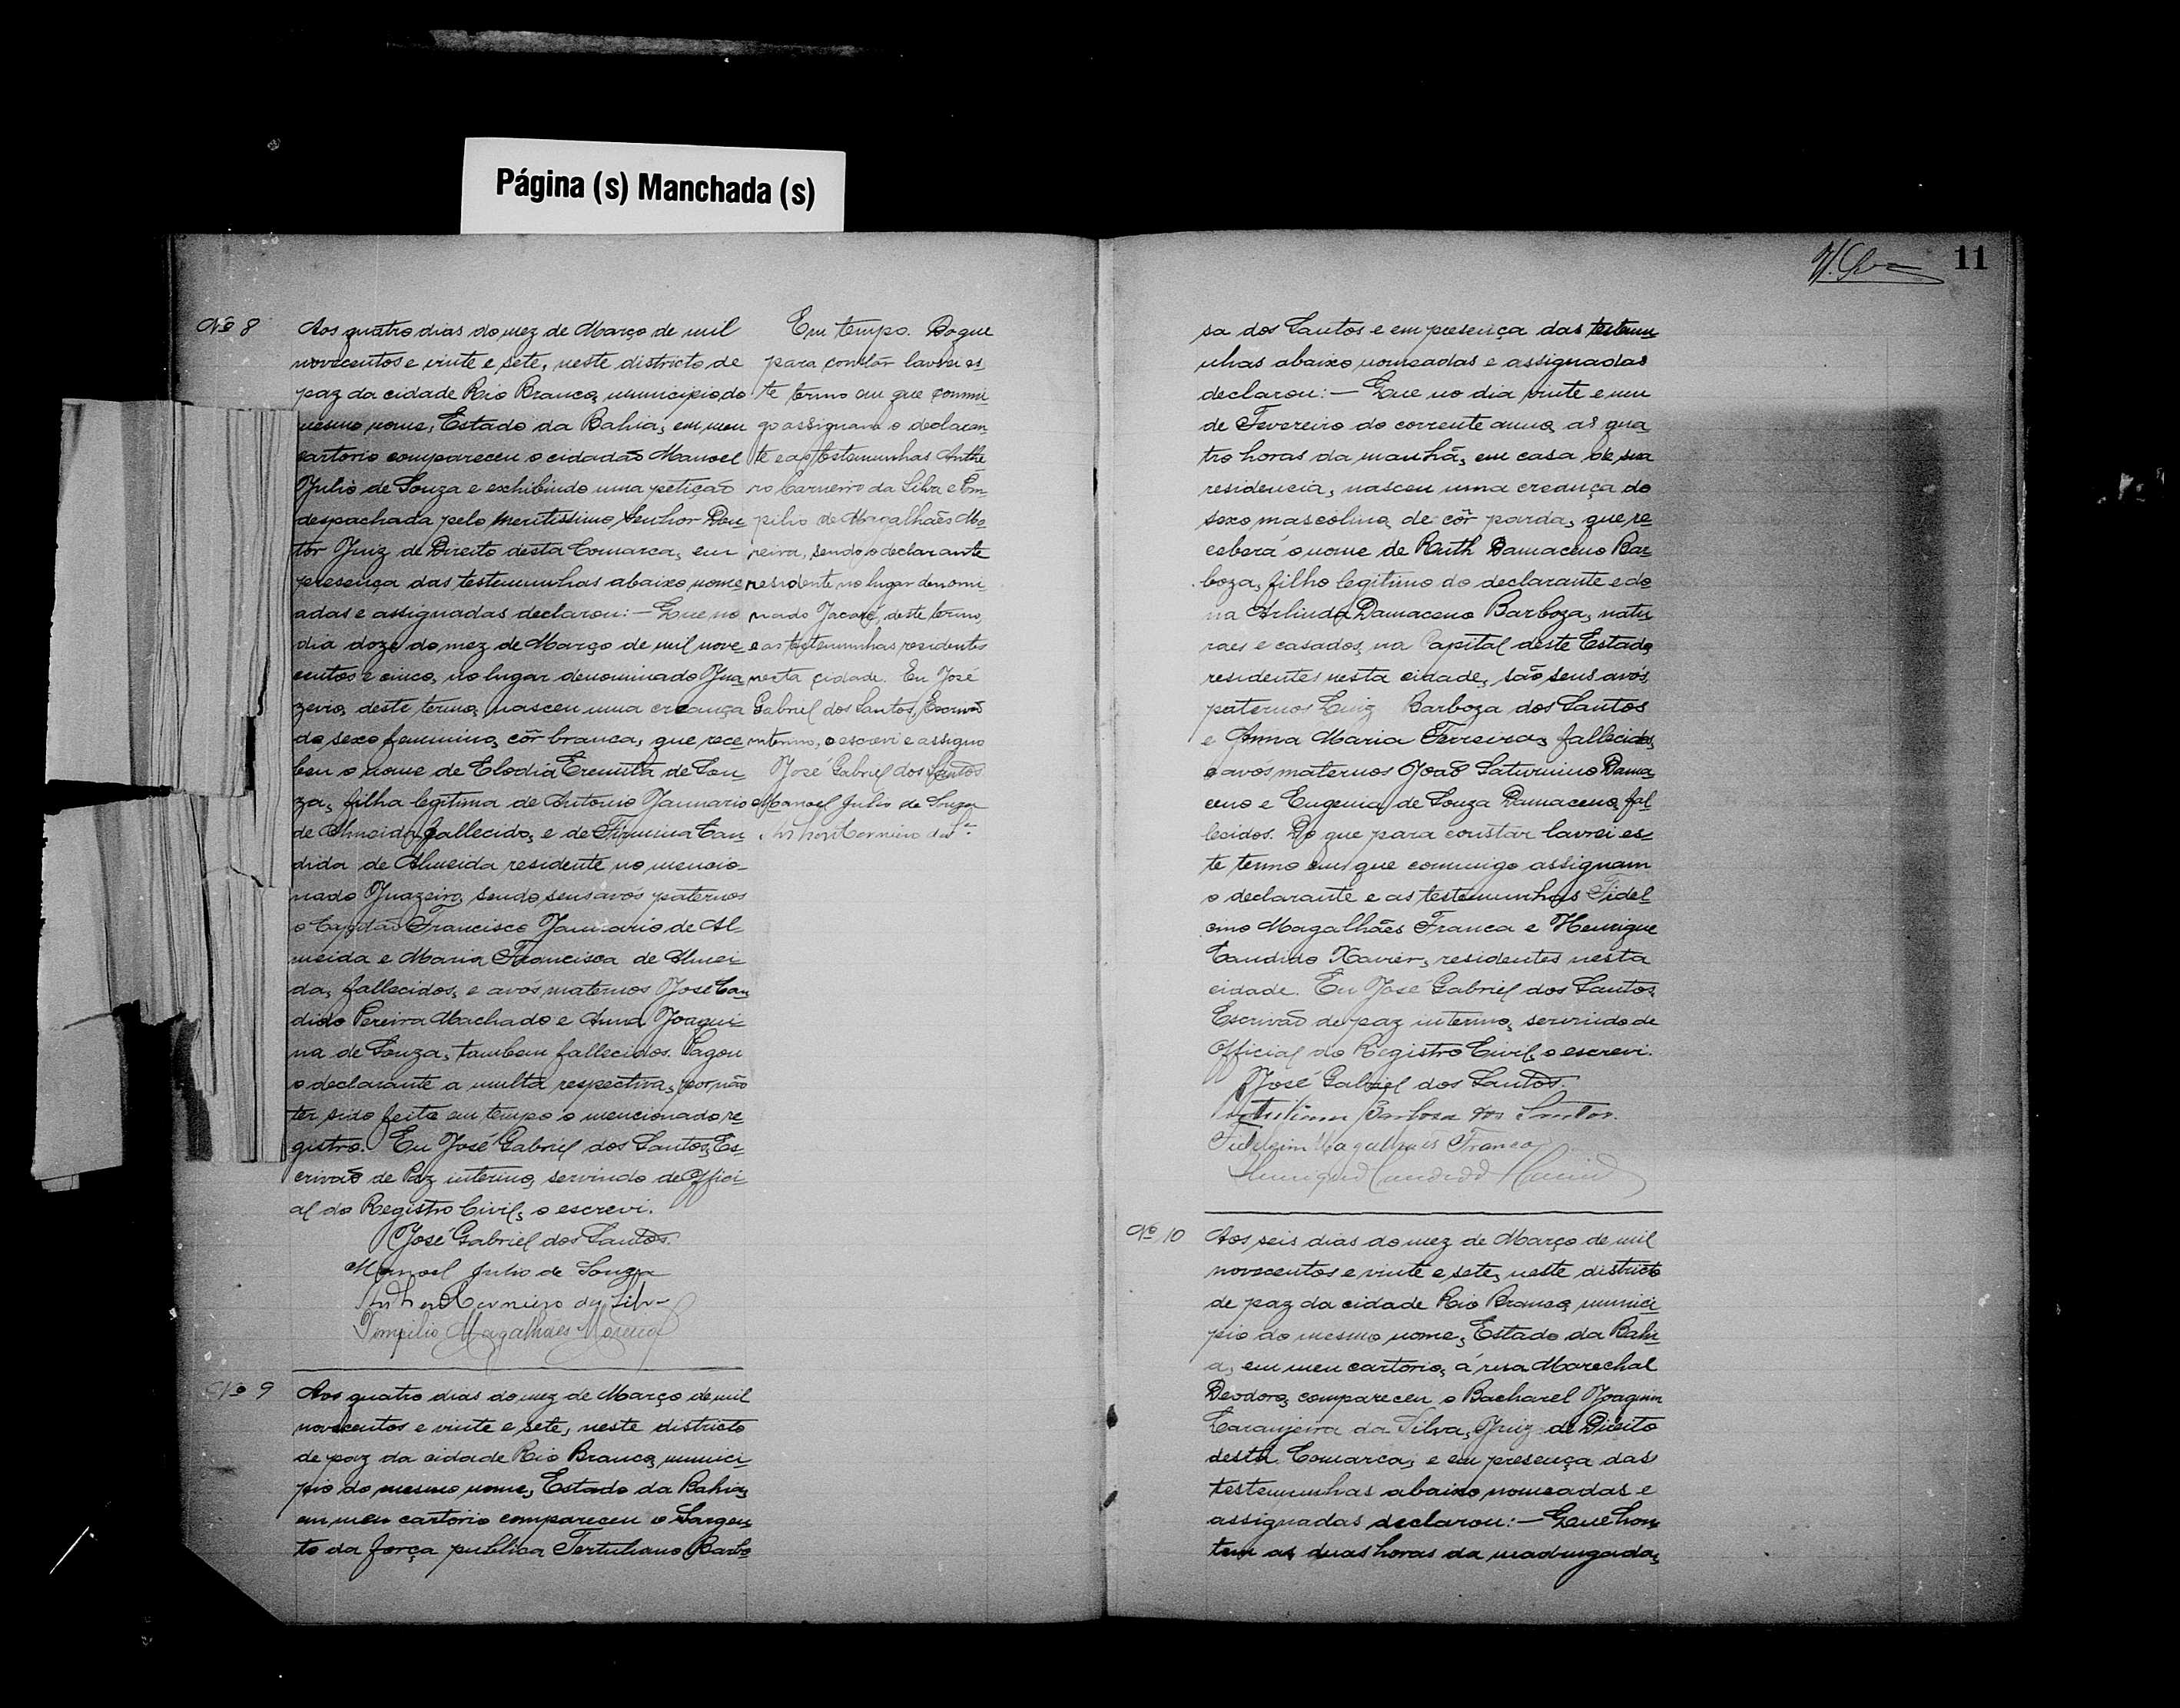 Página (s) Manchada (s)
Nº 8
Aos quatro dias do mez de Março de mil
novecentos e vinte e sete, neste districto de
paz da cidade Rio Branco, municipio do
mesmo nome, Estado da Bahia, em meu
cartorio compareceu o cidadão Manoel
Julio de Souza e exhibindo uma petição
despachada pelo Meritissimo Senhor Dou-
tor Juiz de Direito desta Comarca, em
presença das testemunhas abaixo nome-
adas e assignadas declarou: — Que no
dia doze do mez de Março de mil nove-
centos e cinco, no lugar denominado Jua-
zeiro, deste termo, nasceu uma creança
do sexo feminino, côr branca, que rece-
beu o nome de Elodia Eremita de Sou-
za, filha legitima de Antonio Januario
de Almeida, fallecido, e de Firmina Can-
dida de Almeida residente no mencio-
nado Juazeiro, sendo seus avós paternos
o Capitão Francisco Januario de Al-
meida e Maria Francisca de Almei-
da, fallecidos, e avós maternos José Can-
dido Pereira Machado e Anna Joaqui-
na de Souza, tambem fallecidos. Pagou
o declarante a multa respectiva, por não
ter sido feito em tempo o mencionado re-
gistro. Eu José Gabriel dos Santos, Es-
crivão de Paz interino, servindo de Offici-
al do Registro Civil, o escrevi.
José Gabriel dos Santos.
Manoel Julio de Souza
Carneiro da Silva
Pompilio Magalhães Moreira
Em tempo. Do que
para constar lavrei es-
te termo em que commi-
go assignam o declaran-
te e as testemunhas Anthe-
ro Carneiro da Silva e Pom-
pilio de Magalhães Mo-
reira, sendo o declarante
residente no lugar denomi-
nado Jacaré, deste termo,
e as testemunhas residentes
nesta cidade. Eu José
Gabriel dos Santos, Escrivão
interino, o escrevi e assigno
José Gabriel dos Santos
Manoel Julio de Souza
Carneiro da Sª
Nº 9
Aos quatro dias do mez de Março de mil
novecentos e vinte e sete, neste districto
de paz da cidade Rio Branco, munici-
pio do mesmo nome, Estado da Bahia,
em meu cartorio compareceu o Sargen-
to da força publica Tertuliano Barbo-
11
sa dos Santos e em presença das testemu-
nhas abaixo nomeadas e assignadas
declarou: — Que no dia vinte e um
de Fevereiro do corrente anno, as qua-
tro horas da manhã, em casa de sua
residencia, nasceu uma creança do
sexo mascolino, de côr parda, que re-
ceberá o nome de Ruth Damaceno Bar-
boza, filho legitimo do declarante e do-
na Arlinda Damaceno Barboza, natu-
raes e casados, na Capital deste Estado,
residentes nesta cidade, são seus avós
paternos Luiz Barboza dos Santos
e Anna Maria Ferreira, fallecidos,
e avós maternos João Saturnino Dama-
ceno e Eugenia de Souza Damaceno, fal-
lecidos. Do que para constar lavrei es-
te termo em que commigo assignam
o declarante e as testemunhas Fidel-
cino Magalhães Franca e Henrique
Candido Xavier, residentes nesta
cidade. Eu José Gabriel dos Santos,
Escrivão de paz interino, servindo de
Official do Registro Civil, o escrevi.
José Gabriel dos Santos.
Tertuliano Barbosa dos Santos.
Fidelcino Magalhães Franca
Henrique Candido Xavier
Nº 10
Aos seis dias do mez de Março de mil
novecentos e vinte e sete, neste districto
de paz da cidade Rio Branco, munici-
pio do mesmo nome, Estado da Bahi-
a, em meu cartorio, á rua Marechal
Deodoro, compareceu o Bacharel Joaquim
Laranjeira da Silva, Juiz de Direito
desta Comarca, e em presença das
testemunhas abaixo nomeadas e
assignadas declarou: — Que hon-
tem as duas horas da madrugada,